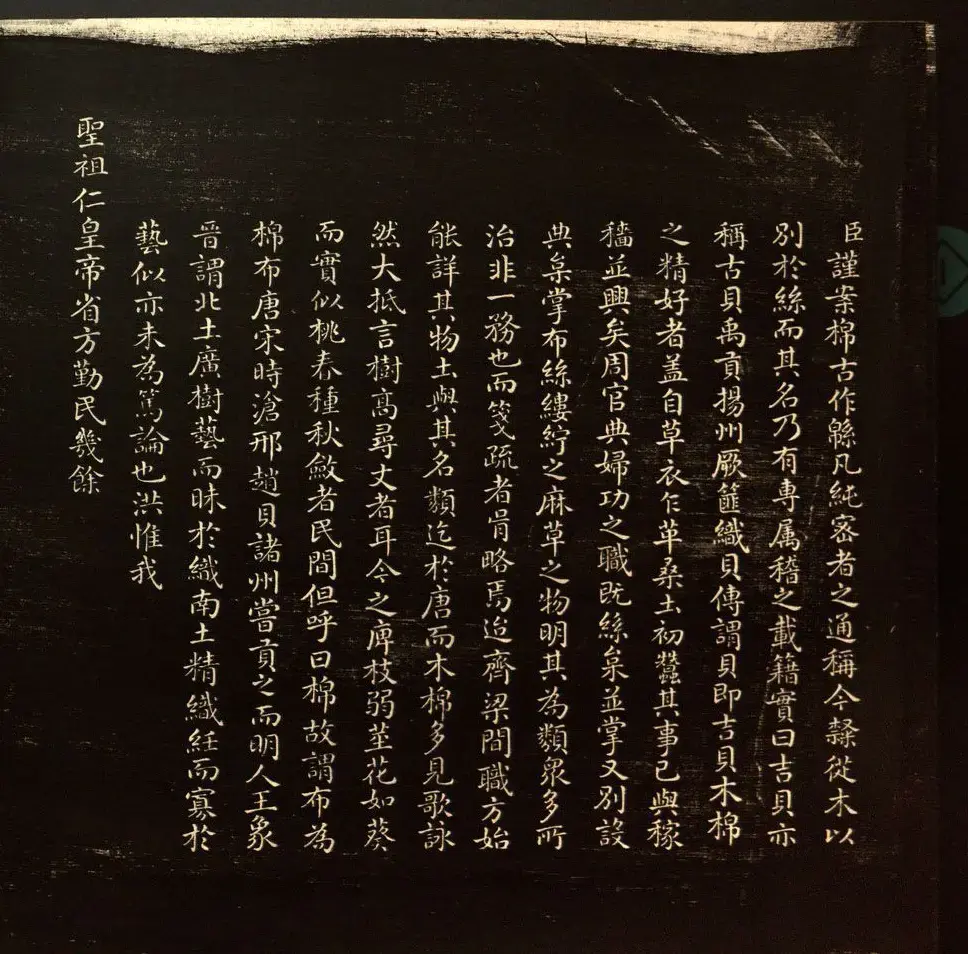 臣謹案棉古作緜凡純密者之通稱今隸從木以
別於絲而其名乃有專属稽之載籍實曰吉貝亦
稱古貝禹貢揚州厥篚織貝傳謂貝即吉貝木棉
之精好者盖自草衣乍革桑土初蠶其事已與稼
穡並興矣周官典婦功之職既絲枲並掌又別設
典枲掌布絲縷紵之麻草之物明其為類衆多所
治非一務也而箋疏者肯略焉迨齊梁間職方始
能詳其物土與其名類迄於唐而木棉多見歌詠
然大抵言樹高尋丈者耳今之庳枝弱莖花如葵
而實似桃春種秋斂者民間但呼曰棉故謂布為
棉布唐宋時滄邢趙貝諸州嘗貢之而明人王象
晉謂北土廣樹藝而昧於織南土精織絍而寡於
藝似亦未為篤論也洪惟我
聖祖仁皇帝省方勤民幾餘